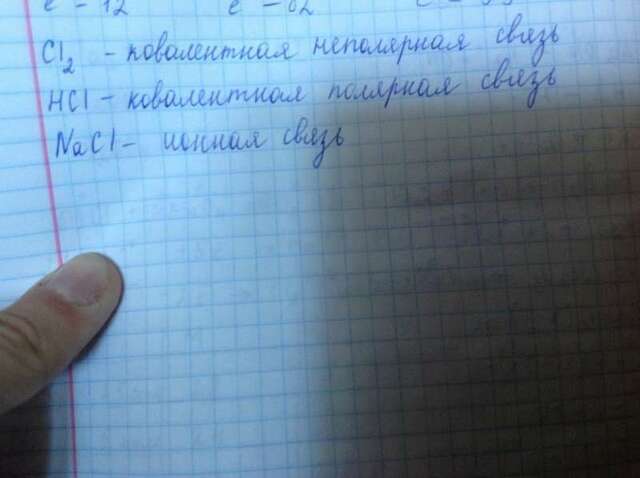 Cl2 - ковалентная неполярная связь
HCl - ковалентная полярная связь
NaCl - ионная связь